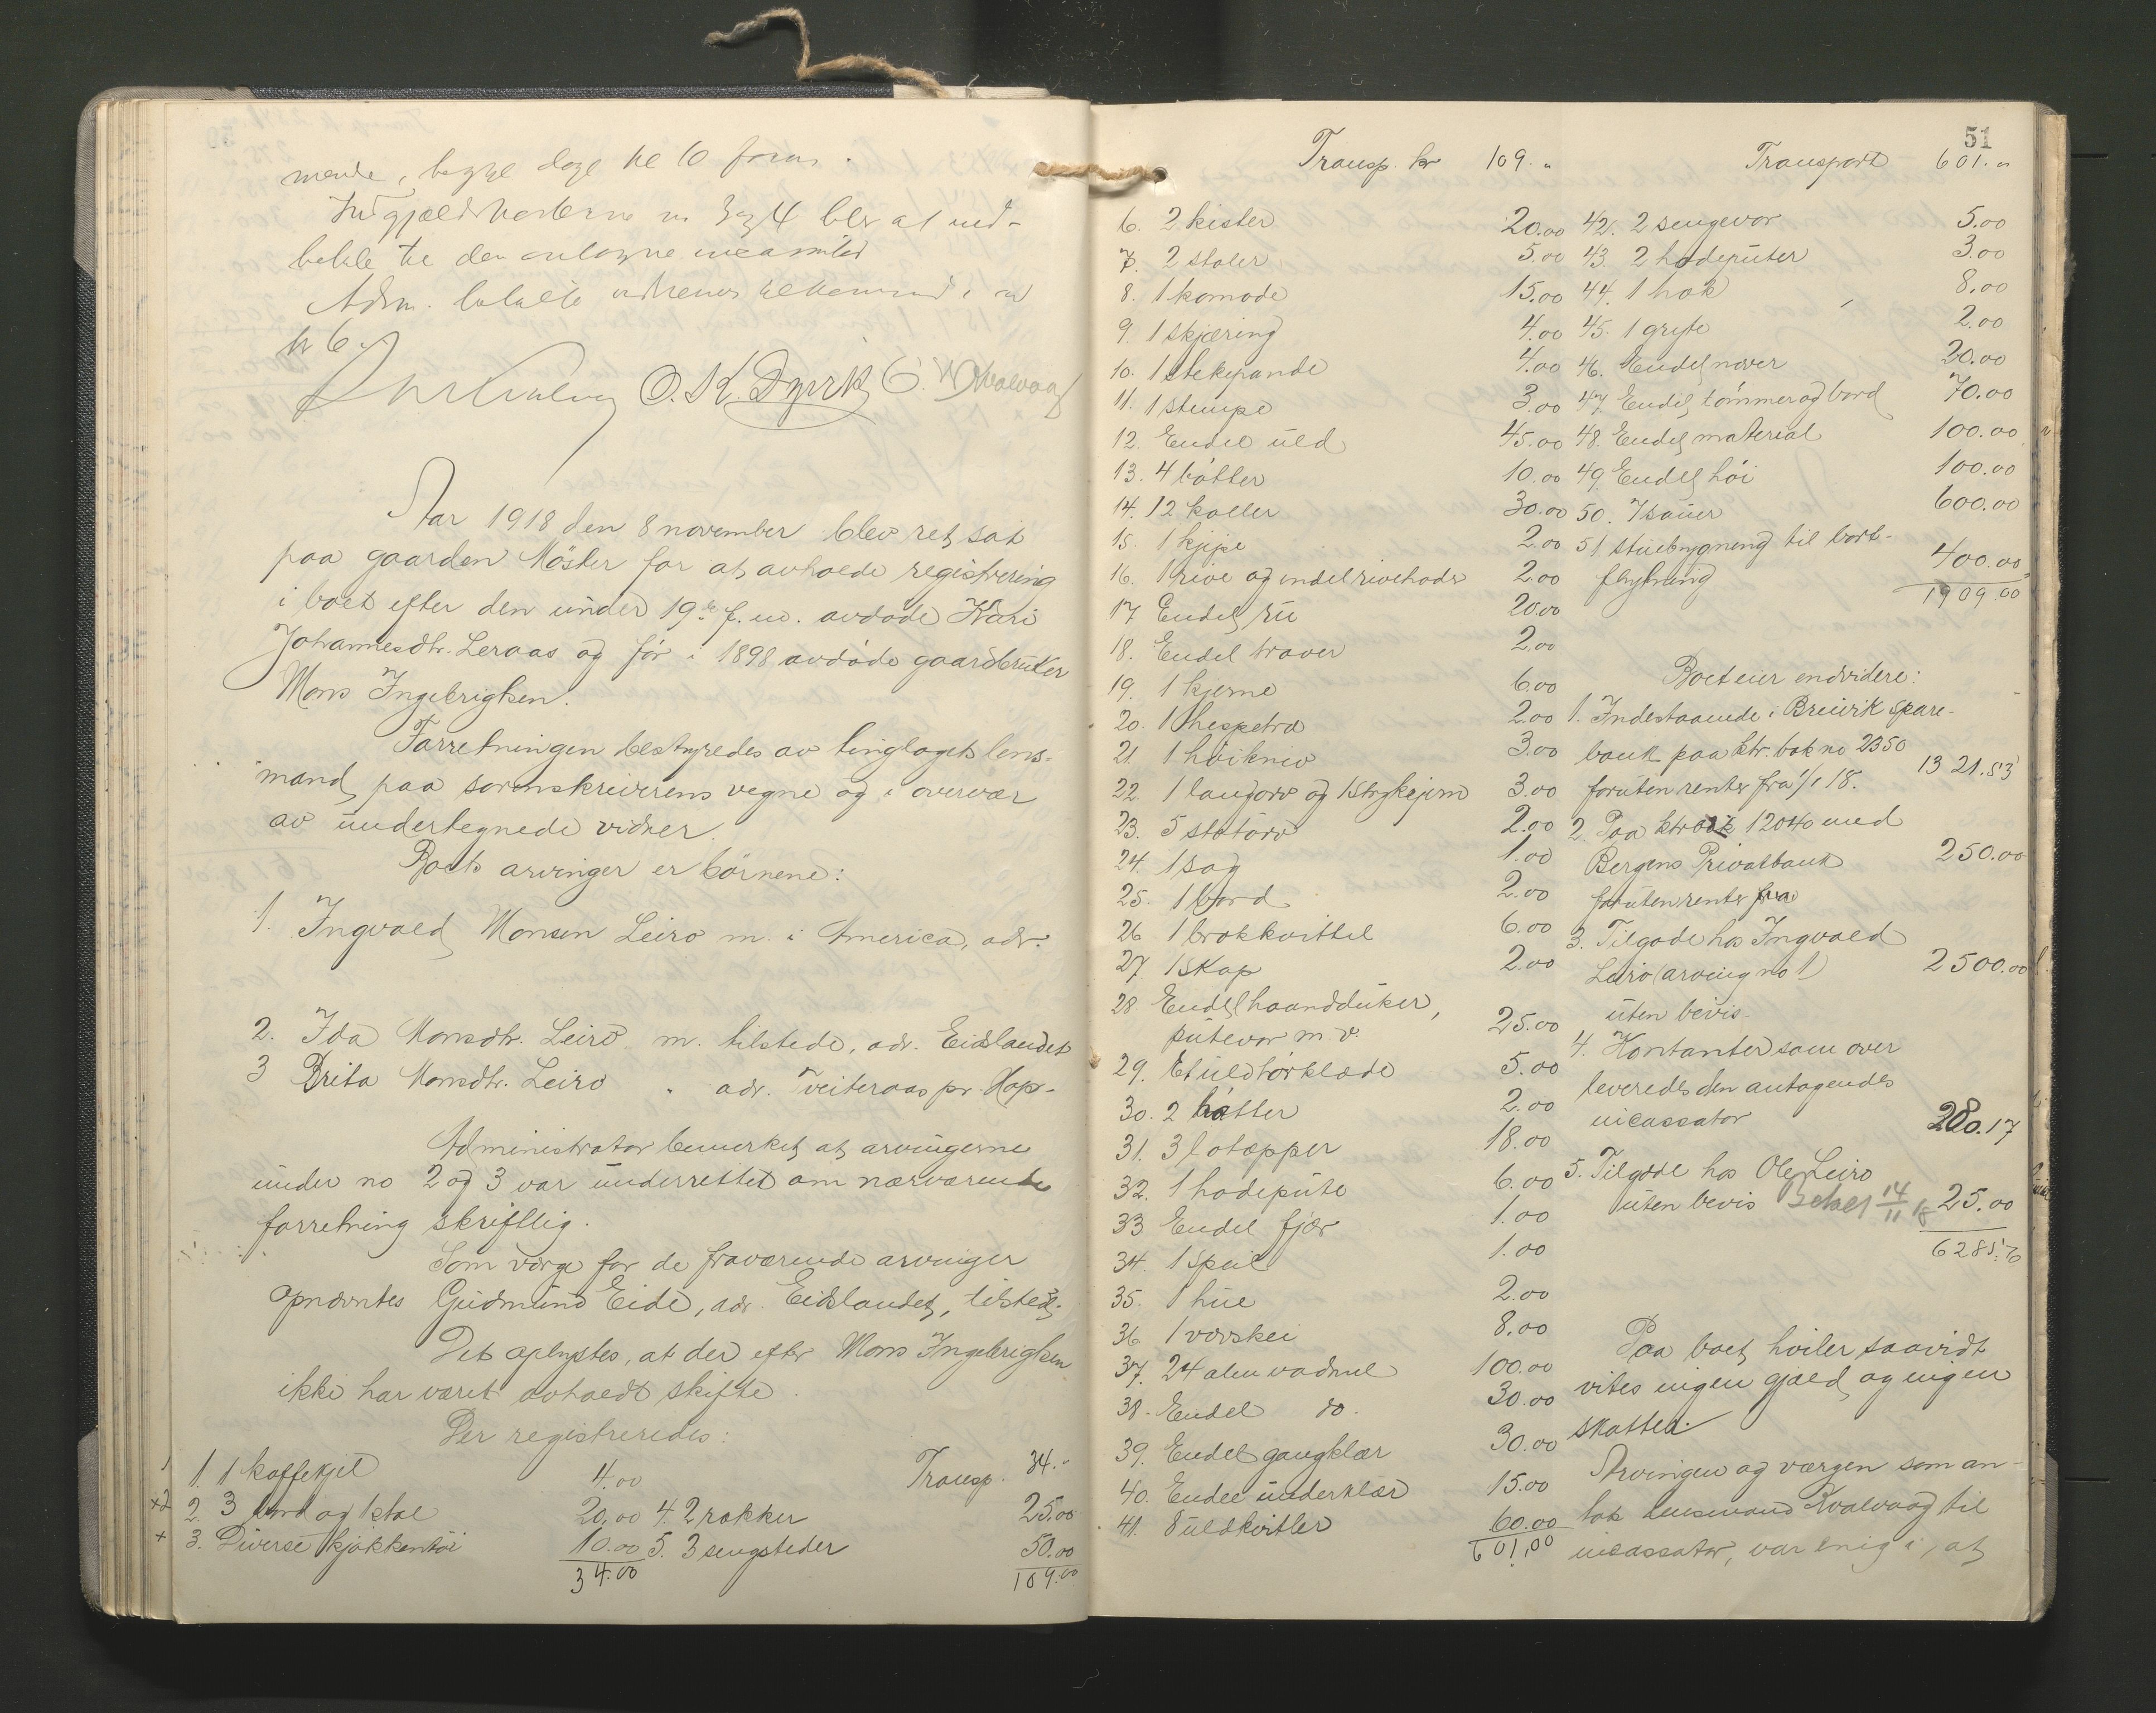 mende, begge dage kl 10 form.
Indgjældskortene no 3 og 4 blev at ind-
betale til den antagne incassator
Adm.
kr 6.
O. K. Dyvik
Aar 1918 den 8 november blev ret sat
paa gaarden Möster for at avholde registrering
i boet efter den under 19de f. m. avdøde Kari
Johannesdtr. Leraas og før i 1898 avdøde gaardbruker
Mons Ingebrigtsen.
Forretningen bestyredes av tinglagets lens-
mand paa sorenskriverens vegne og i overvær
av undertegnede vidner.
Boets arvinger er börnene:
1. Ingvald Monsen Leiro m. i America, adr.
2. Ida Monsdtr. Leiro m. tilstede, adr. Eidslandet
3 Brita Monsdtr. Leiro " adr. Tveiteraas pr. Hop-
Administrator bemerket at arvingerne
under no 2 og 3 var underrettet om nærværende
forretning skriftlig.
Som værge for de fraværende arvinger
opnævntes Gudmund Eide, adr. Eidslandet, tilstede.
Det oplystes, at der efter Mons Ingebrigtsen
ikke har været avholdt skifte.
Der registreredes:
1. 1 kaffekjel 4.00
2. 3 bord og 1 stol 20.00
3. Diverse kjøkkentøi 10.00
34.00
Transp. 34.-
4. 2 rokker 25.00
5. 3 sengsteder 50.00
109.00
Transp. kr 109. "
6. 2 kister 20.00
7. 2 stoler 5.00
8. 1 komode 15.00
9. 1 skjæring 4.00
10. 1 stekepande 4.00
11. 1 stempe 3.00
12. Endel uld 45.00
13. 4 bøtter 10.00
14. 12 koller 30.00
15. 1 kjipe 2.00
16. 1 rive og endel rivehoder 2.00
17 Endel ru 20.00
18. Endel traver 2.00
19. 1 kjerne 6.00
20. 1 hespetræ 2.00
21. 1 høikniv 3.00
22. 1 langorv og 1 strykejern 3.00
23. 5 stutorv 2.00
24. 1 sag 1.00
25. 1 bord 2.00
26 1 brokkvittel 6.00
27. 1 skap 2.00
28. Endel haandduker,
putevor m. v. 25.00
29. Et uldtørklæde 5.00
30. 2 hatter 2.00
31. 3 lotæpper 18.00
32. 1 hodepute 6.00
33 Endel fjær 1.00
34. 1 speil 1.00
35. 1 hue 2.00
36 1 vævskei 8.00
37. 24 alen vadmel 100.00
38. Endel do. 30.00
39. Endel gangklær 30.00
40. Endel underklær 15.00
41. 8 uldkvitler 60.00
601.00
51
Transport 601. "
42. 2 sengevor 5.00
43. 2 hodeputer 3.00
44. 1 hak 8.00
45. 1 gryte 2.00
46. Endel næver 20.00
47. Endel tømmer og bord 70.00
48. Endel material 100.00
49. Endel høi 100.00
50. 7 sauer 600.00
51. stuebygning til bort-
flytning 400.00
1909.00
Boet eier endvidere:
1. Indestaaende i Breivik spare-
bank paa ktr. bok no 2350
foruten renter fra 1/1 18. 1321.53
2. Paa ktrbok 12040 med
Bergens Privatbank 250.00
foruten renter fra
3. Tilgode hos Ingvald
Leiro (arving no 1) 2500.00
uten bevis.
4. Kontanter som over
leveredes den antagendes
incassator 280.17
5. Tilgode hos Ole Leiro
uten bevis Betalt 14/11 18 25.00
6285.70
Paa boet hviler saavidt
vites ingen gjæld og ingen
skatter.
Arvingen og værgen som an-
tok lensmand Kvalvaag til
incassator, var enig i, at